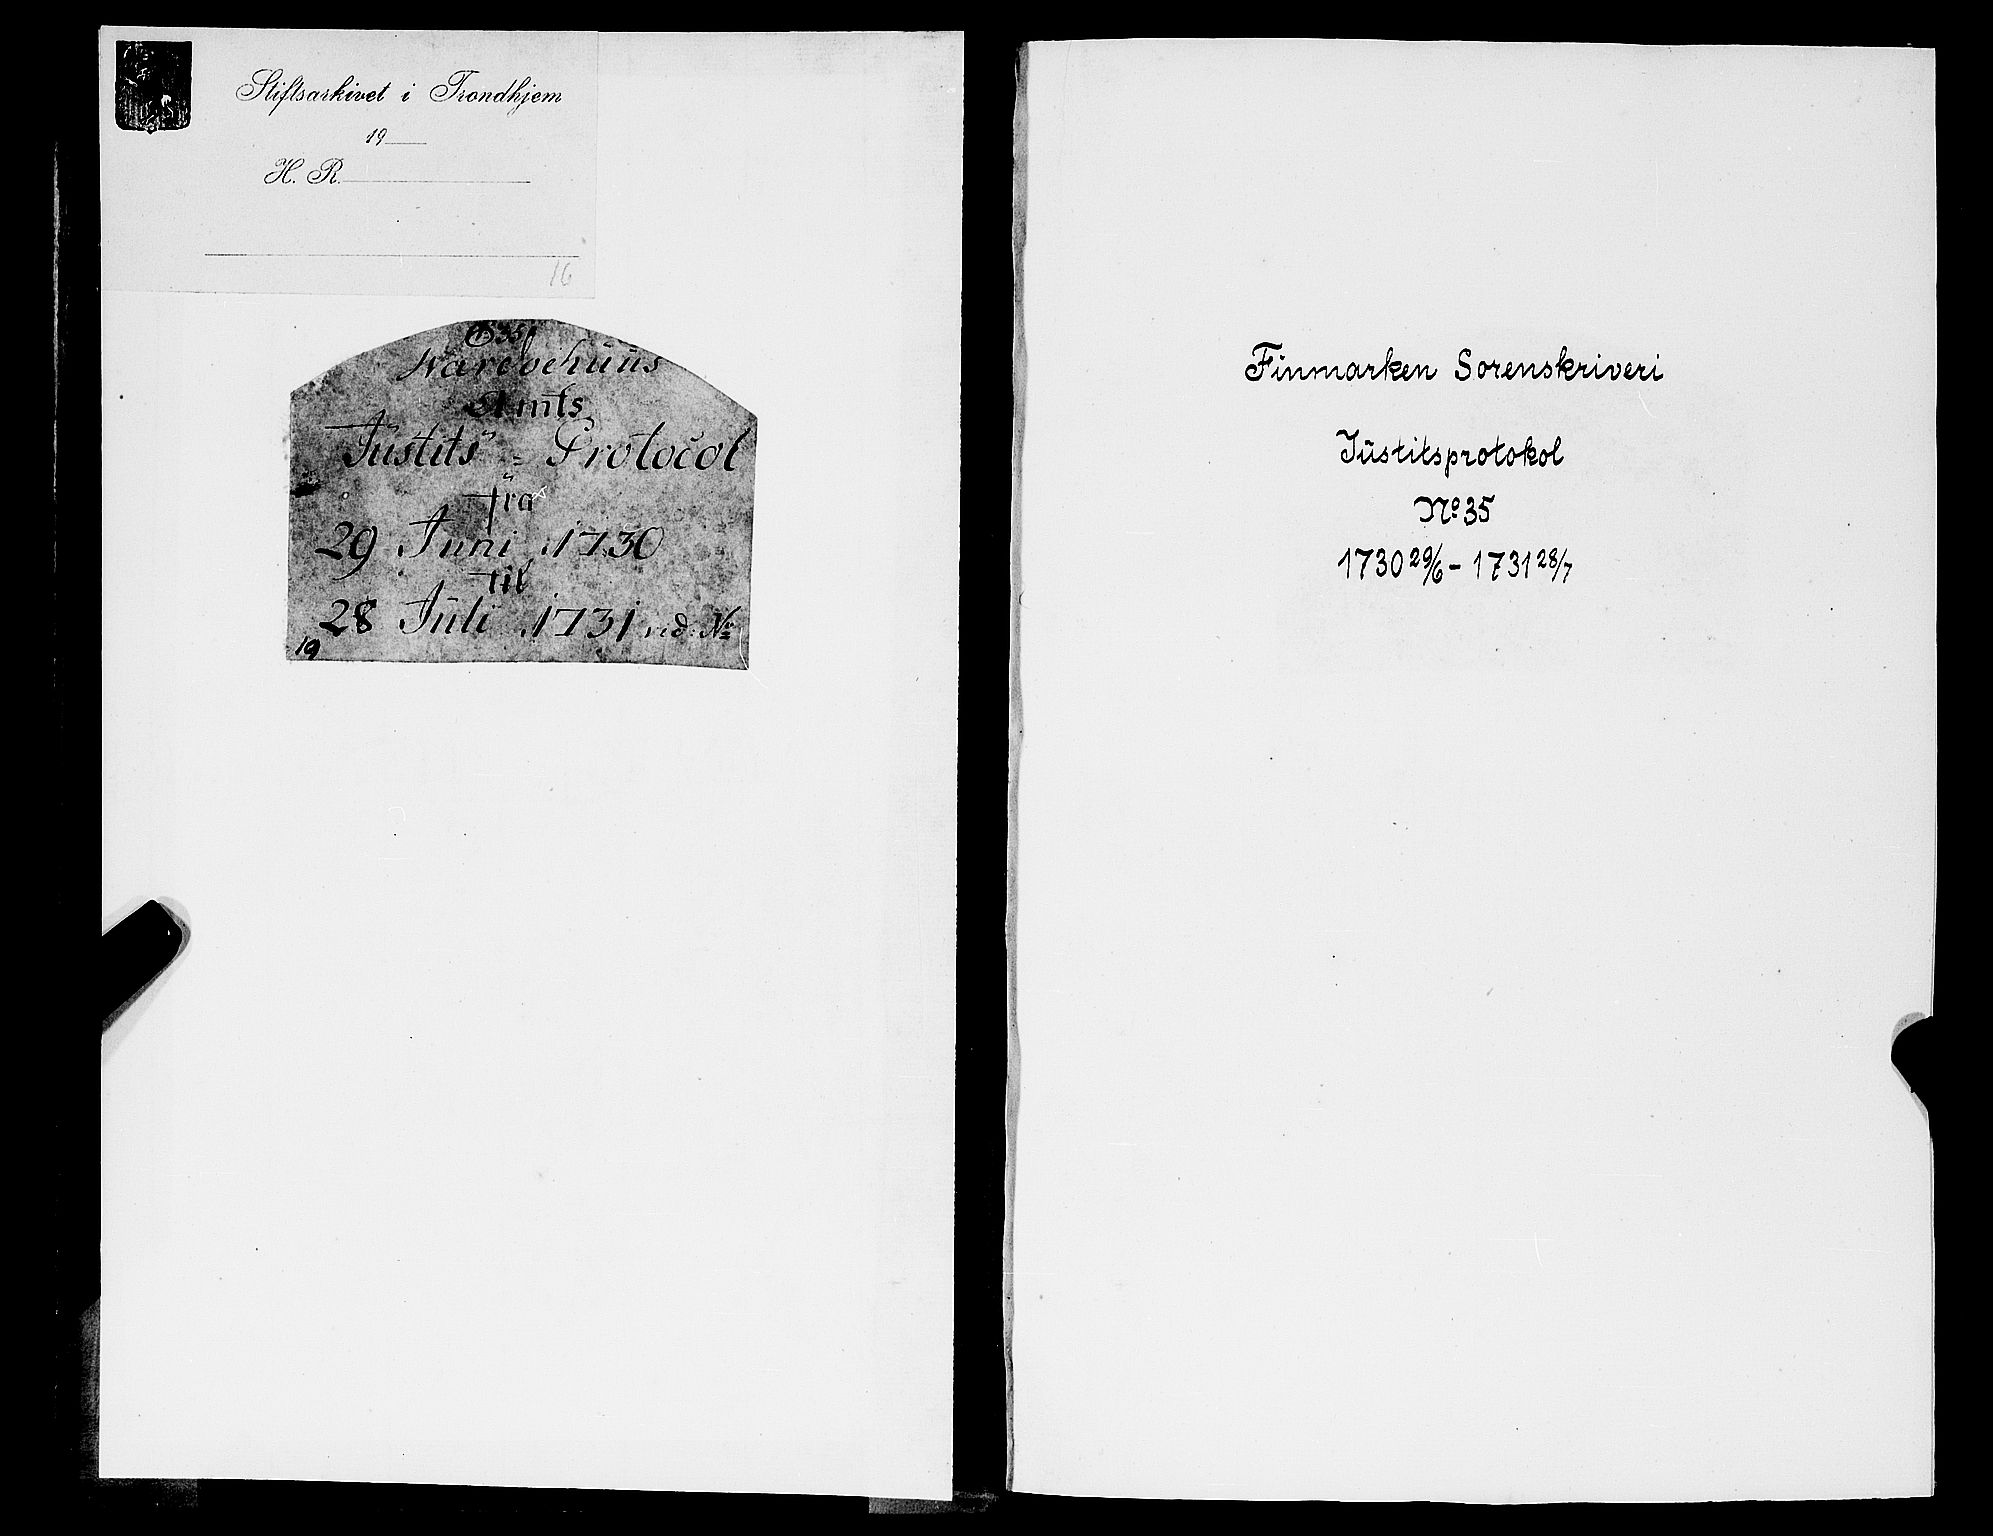 Stiftsarkivet i Trondhjem
19
H. R.
16
35
Wardøehuus
Amts
Justits = Protocol
fra
29 Juni 1730
til
28 Juli 1731 vid: No
19
Finmarken Sorenskriveri
Jŭstitsprotokol
No 35
1730 29/6 - 1731 28/7